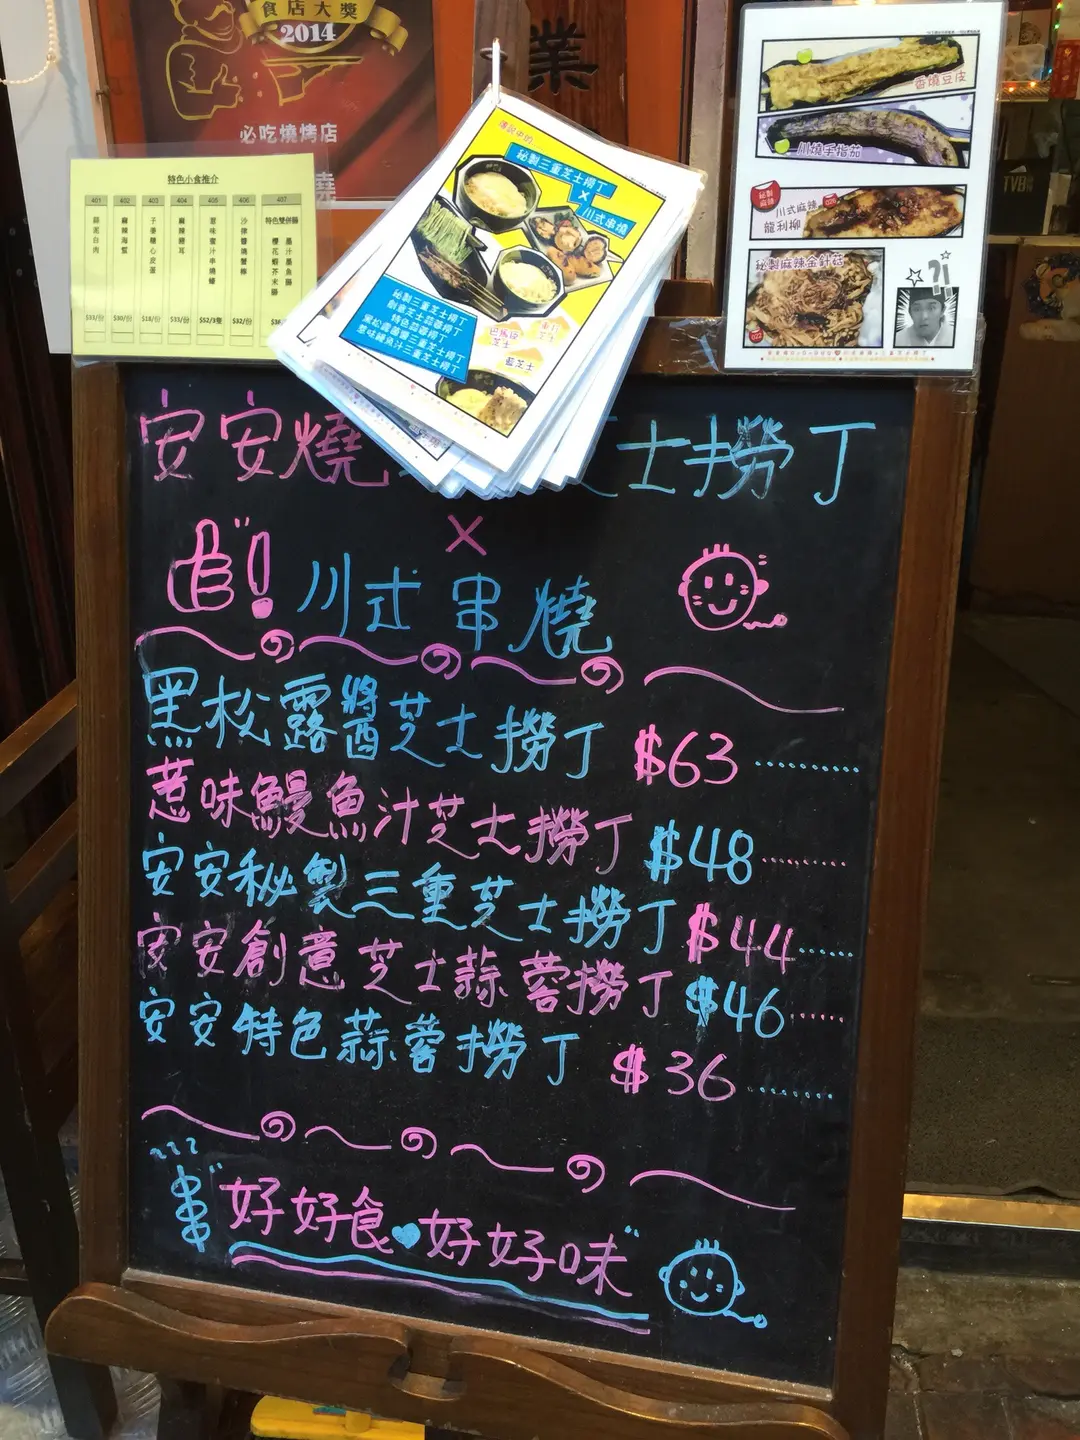 食店大獎
2014
必吃燒烤店
燒
業
特色小食推介
401 402 403 404 405 406 407
蒜泥白肉
麻辣海蜇
子薑糖心皮蛋
麻辣豬耳
惹味蜜汁串燒雞
沙律醬燒蟹柳
特色雙併腸
櫻花蝦芥末腸
墨汁墨魚腸
$33/份 $30/份 $18/份 $33/份 $52/3隻 $32/份 $38
傳說中的
秘製三重芝士撈丁
X
川式串燒
秘製三重芝士撈丁
創意芝士蒜蓉撈丁
特色蒜蓉撈丁
黑松露醬三重芝士撈丁
惹味鰻魚汁三重芝士撈丁
巴馬臣芝士
車打芝士
藍芝士
香燒豆皮
川燒手指茄
秘製麻辣
川式麻辣
龍利柳
秘製麻辣金針菇
?!
TVB
安安燒 芝士撈丁
×
！川式串燒
黑松露醬芝士撈丁 $63 ..........
惹味鰻魚汁芝士撈丁 $48 .........
安安秘製三重芝士撈丁 $44 ......
安安創意芝士蒜蓉撈丁 $46 ......
安安特色蒜蓉撈丁 $36 ........
串"好好食♥好好味"